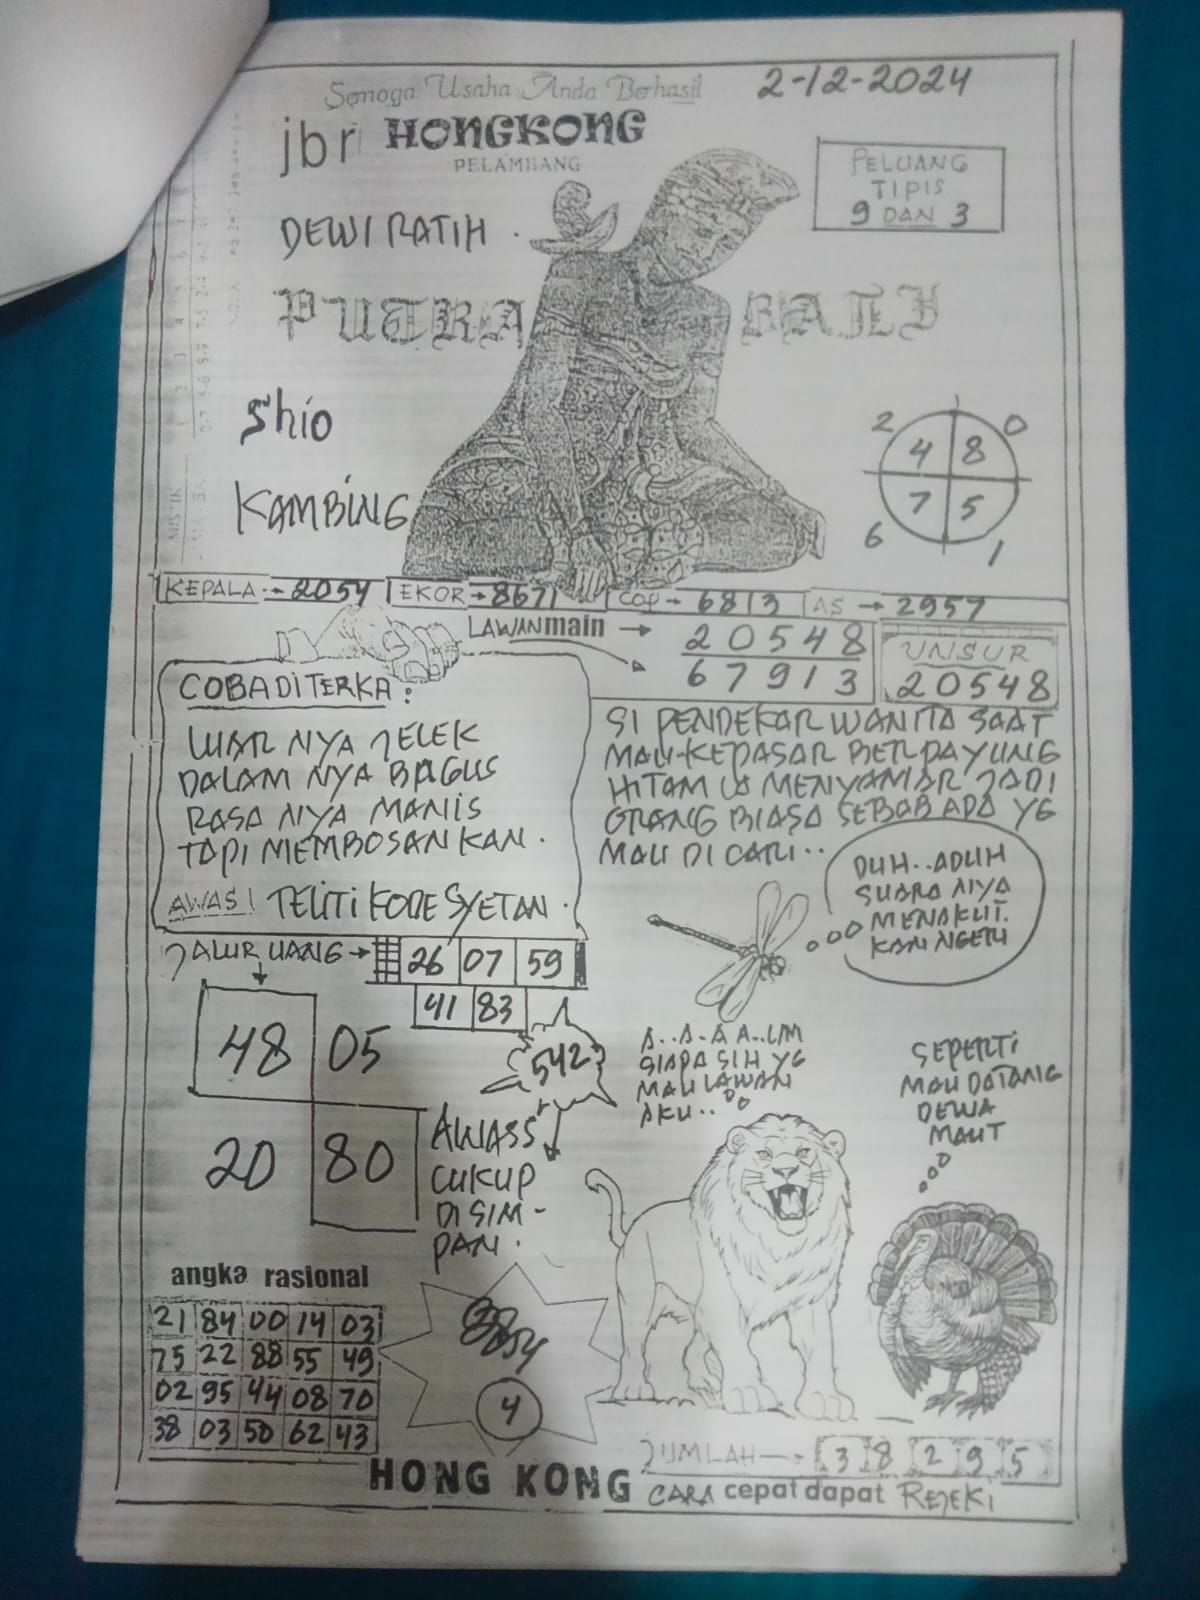 Semoga Usaha Anda Berhasil
2-12-2024
jbr HONGKONG
PELAMBANG
PELUANG
TIPIS
9 DAN 3
DEWI RATIH
PUTRA BALI
Shio
KAMBING
2 0
4 8
7 5
6 1
KEPALA → 2054 EKOR → 8671 COP → 6813 AS → 2957
LAWAN main → 20548
67913
UNSUR
20548
COBA DITERKA :
LUAR NYA JELEK
DALAM NYA BAGUS
RASA NYA MANIS
TAPI MEMBOSANKAN.
AWAS! TELITI KODE SYETAN.
SI PENDEKAR WANITA SAAT
MAU KEPASAR BERPAYUNG
HITAM IA MENYAMAR JADI
ORANG BIASA SEBAB ADA YG
MAU DI CARI..
DUH..ADUH
SUARA NYA
MENAKUT.
KAN NGERI
JALUR UANG → 26 07 59
41 83
48 05
20 80
542
AWASS
CUKUP
DI SIM-
PAN.
A..A-A A..UM
SIAPA SIH YG
MAU LAWAN
AKU..
SEPERTI
MAU DATANG
DEWA
MAUT
angka rasional
21 84 00 14 03
75 22 88 55 49
02 95 44 08 70
38 03 50 62 43
4
JUMLAH → 3 8 2 9 5
HONG KONG CARA cepat dapat REJEKI